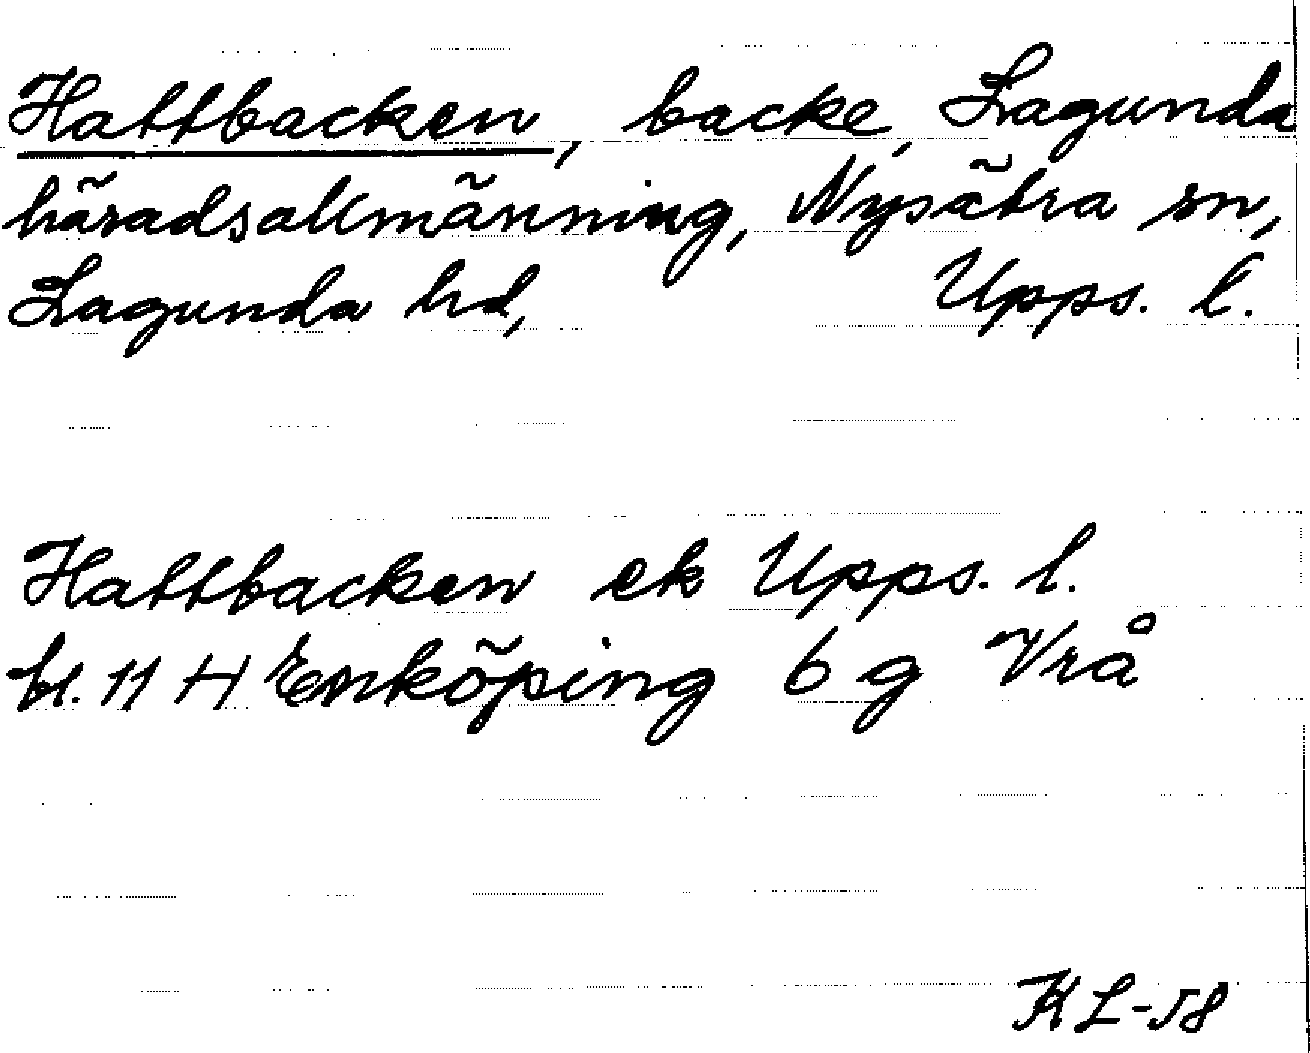 Hattbacken, backe, Lagunda
häradsallmänning, Nysätra sn,
Lagunda hd, Upps. l.
Hattbacken ek Upps. l.
bl. 11 H Enköping 6 g Vrå
KL-58